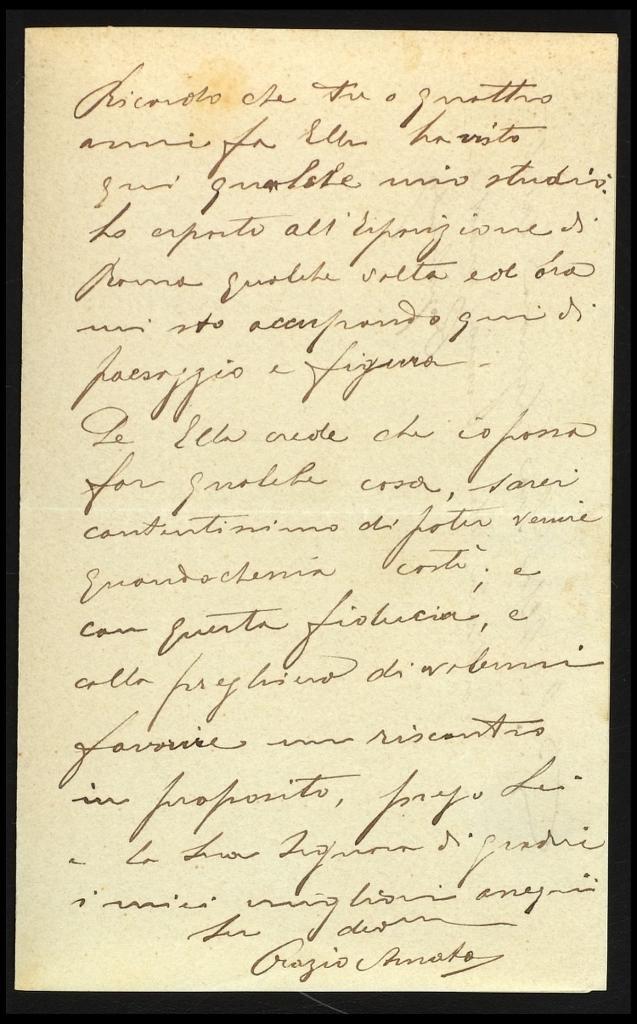 Ricordo che tre o quattro
anni fa Ella ha visto
qui qualche mio studio;
ho esposto all'Esposizione di
Roma qualche volta ed ora
mi sto occupando qui di
paesaggio e figura.
Se Ella crede che io possa
far qualche cosa, sarei
contentissimo di poter venire
quandochessia costì; e
con questa fiducia, e
colla preghiera di volermi
favorire un riscontro
in proposito, prego Lei
e la Sua Signora di gradire
i miei migliori ossequi
Suo dev
Orazio Amato